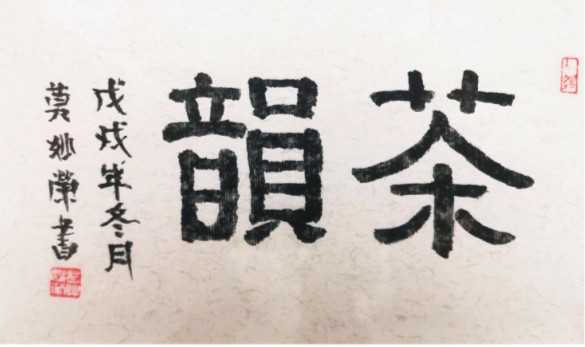 茶韻
戊戌年冬月
莫妙榮書